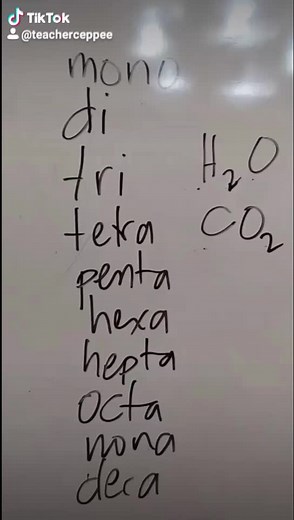 TikTok
@teacherceppee
mono
di
tri
tetra
penta
hexa
hepta
octa
nona
deca
H₂O
CO₂